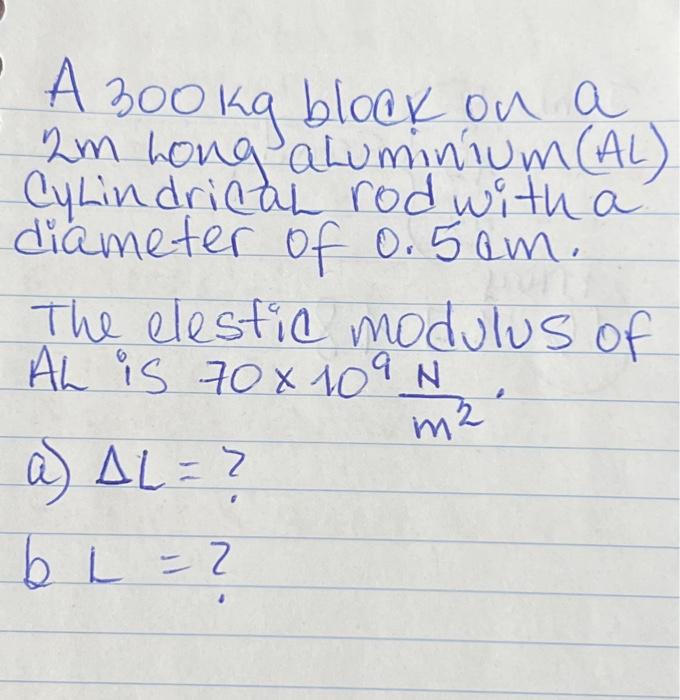 A 300kg block on a
2m Long aluminium (AL)
CyLindrical rod with a
diameter of 0.5cm.
The elestic modulus of
AL is 70 × 10⁹ N/m².
a) ΔL = ?
b L = ?